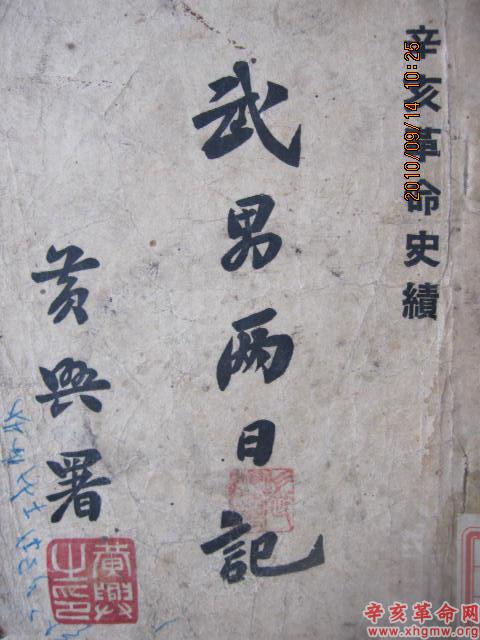 辛亥革命史績
武男两日記
黄興署
黄興之印
2010/09/14 10:25
辛亥革命网
www.xhgmw.org